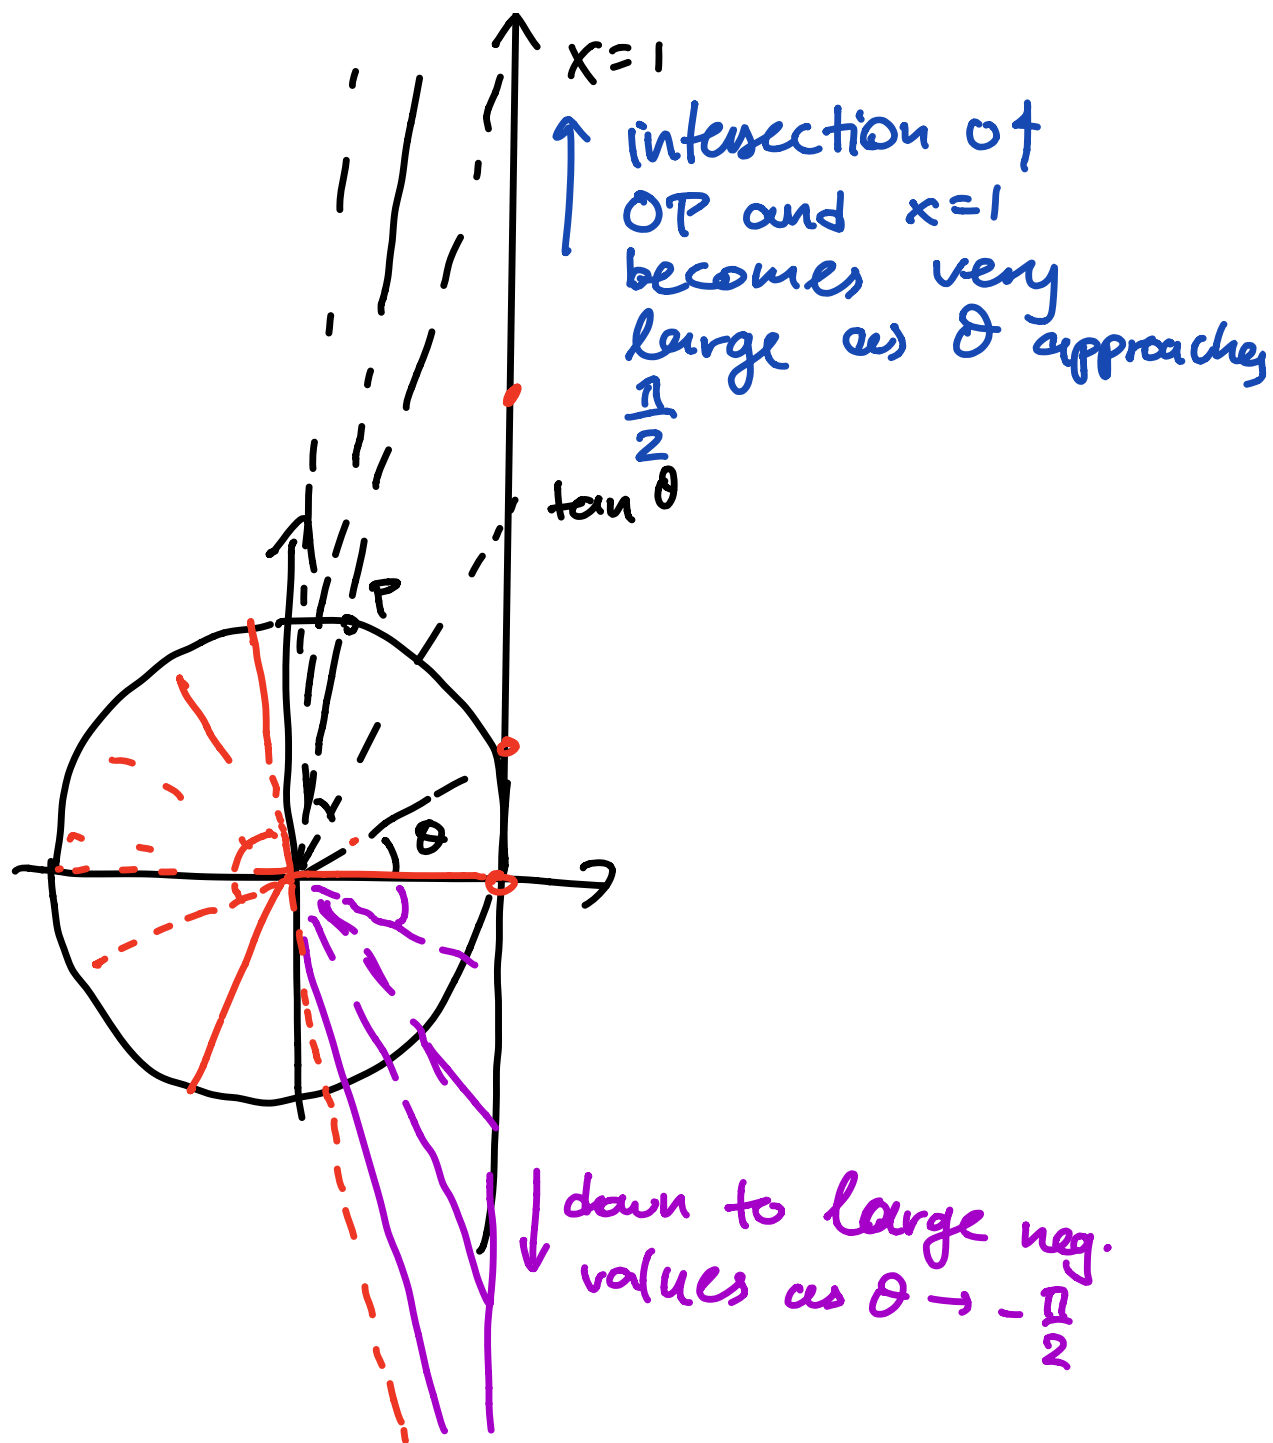 x=1
intersection of
OP and x=1
becomes very
large as θ approaches
π/2
tan θ
P
θ
down to large neg.
values as θ → -π/2